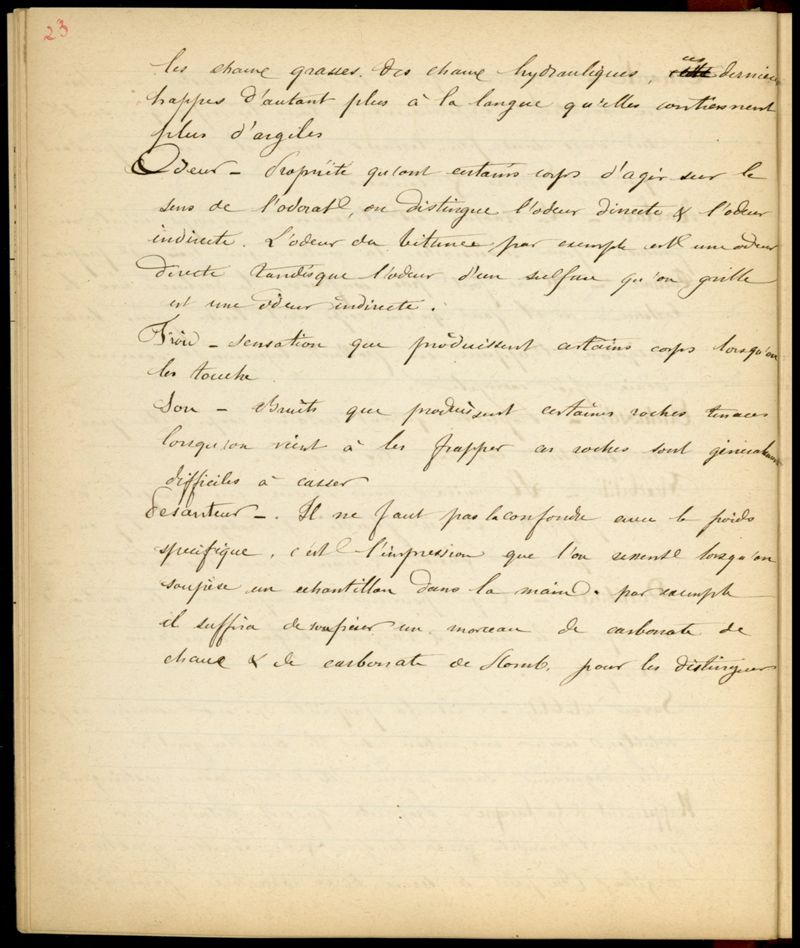 23
les chaux grasses. des chaux hydrauliques, ces dernières
happes d'autant plus à la langue qu'elles contiennent
plus d'argiles
Odeur – Propriété qu'ont certains corps d'agir sur le
sens de l'odorat, on distingue l'odeur directe & l'odeur
indirecte. L'odeur du bitume par exemple est une odeur
directe tandisque l'odeur d'un sulfure qu'on grille
est une odeur indirecte.
Froid – sensation que produissent certains corps lorsqu'on
les touche
Son – Bruits que produissent certaines roches tenaces
lorsqu'on vient à les frapper ces roches sont généralement
difficiles à casser
Pesanteur –. Il ne faut pas la confondre avec le poids
spécifique, c'est l'impression que l'on ressent lorsqu'on
soupèse un echantillon dans la main. par exemple
il suffira de soupeser un morceau de carbonate de
chaux & de carbonate de Plomb. pour les distinguer